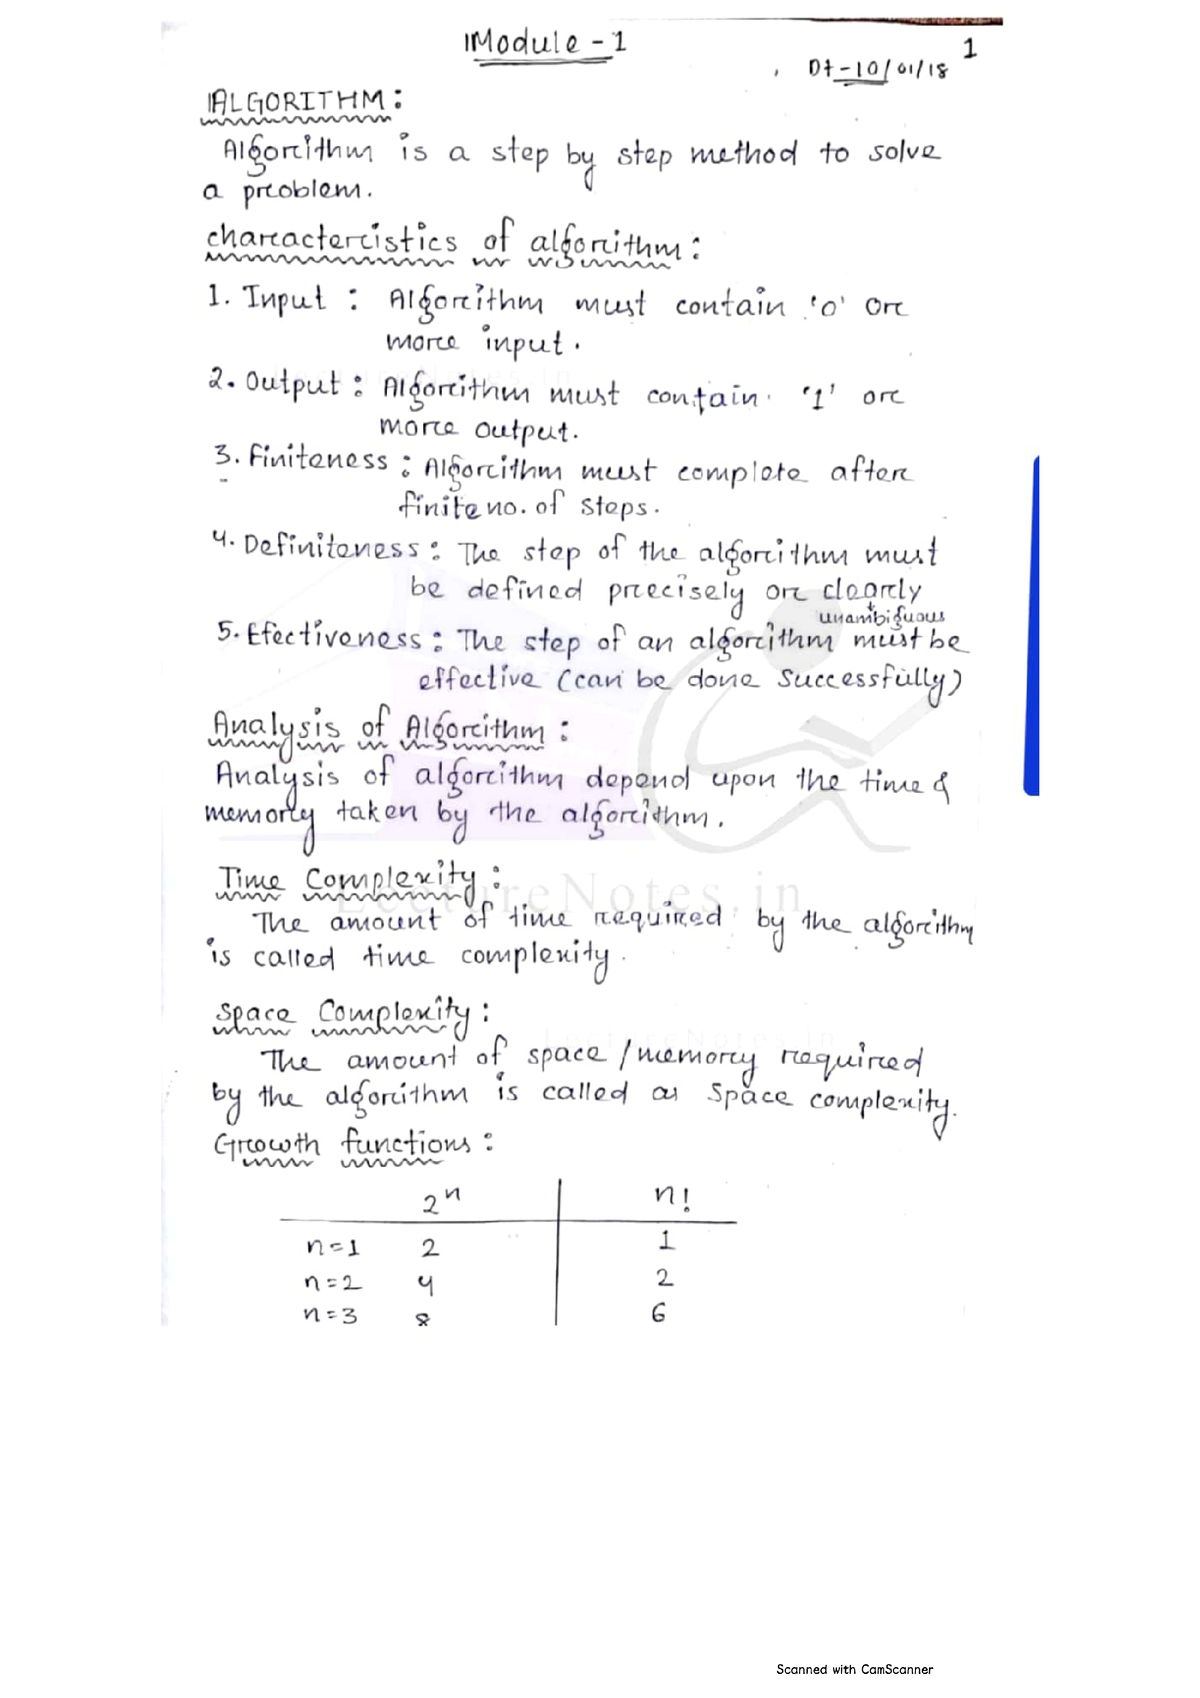 Module - 1
1
Dt - 10/01/18
ALGORITHM :
Algorithm is a step by step method to solve
a problem.
characteristics of algorithm :
1. Input : Algorithm must contain '0' or
more input.
2. Output : Algorithm must contain '1' or
more output.
3. Finiteness : Algorithm must complete after
finite no. of steps.
4. Definiteness : The step of the algorithm must
be defined precisely or clearly
unambiguous
5. Efectiveness : The step of an algorithm must be
effective (can be done successfully)
Analysis of Algorithm :
Analysis of algorithm depend upon the time &
memory taken by the algorithm.
Time Complexity :
LectureNotes.in
The amount of time required by the algorithm
is called time complexity.
Space Complexity :
LectureNotes.in
The amount of space / memory required
by the algorithm is called as space complexity.
Growth functions :
2ⁿ n!
n=1 2 1
n=2 4 2
n=3 8 6
Scanned with CamScanner